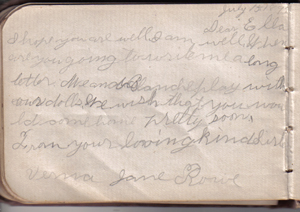 July 15
Dear Ella
I hope you are well. I am well. When
are you going to write me a long
letter Me and Blanche play with
our dolls. We wish that you wou
ld come home pretty soon.
I am your loving kind
Verna Jane Rowe